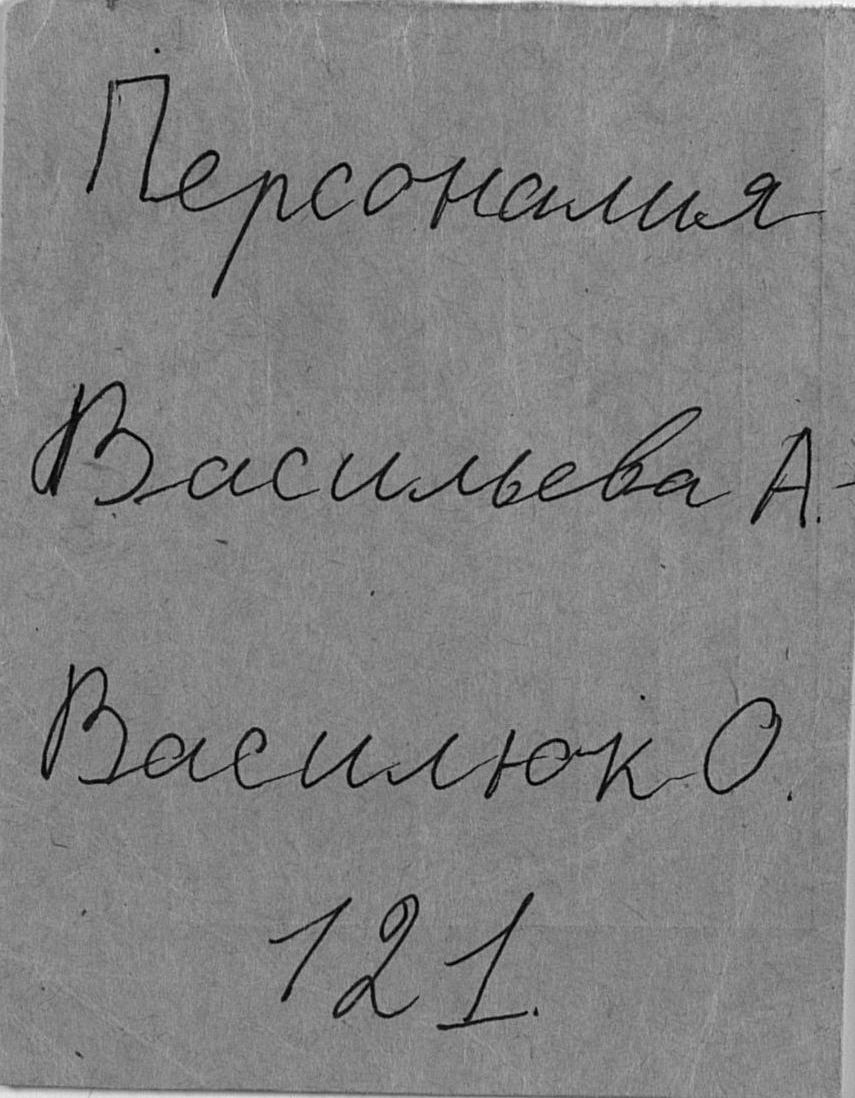 Персоналия
Васильева А.-
Василюк О.
121.